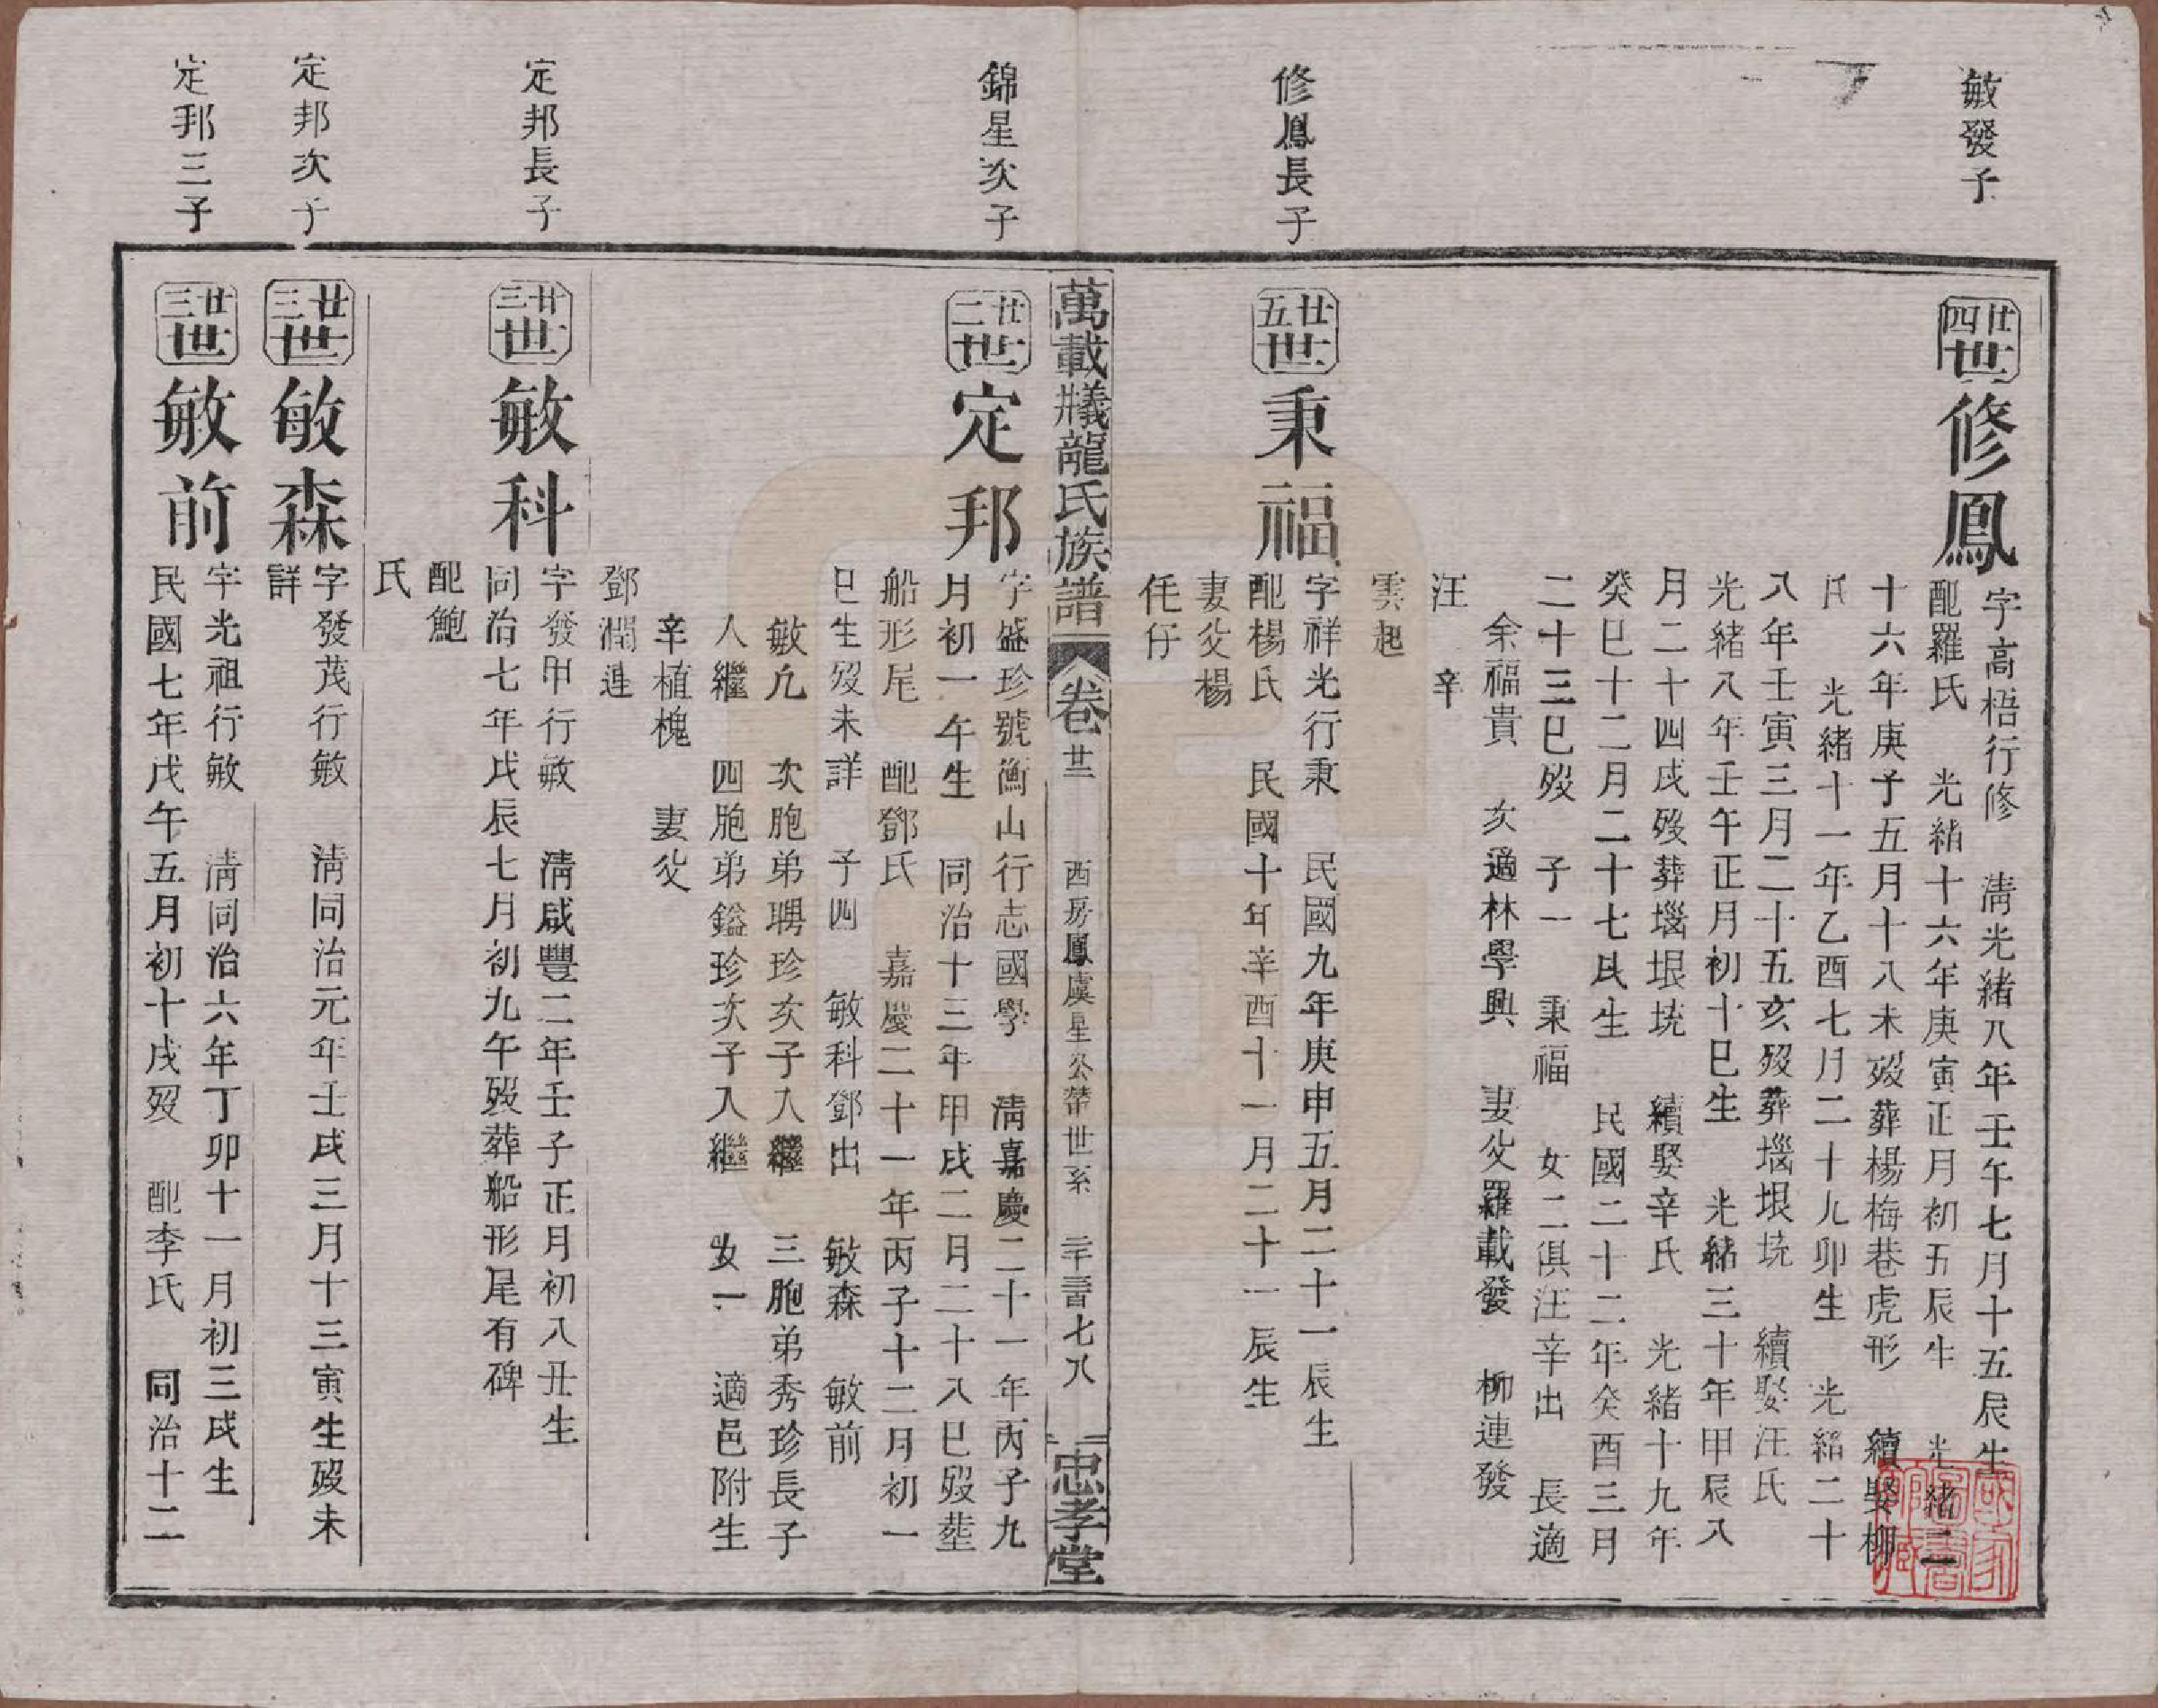 敏發子
廿四世
修鳳
字高梧行修 淸光緒八年壬午七月十五辰生
配羅氏 光緒十六年庚寅正月初五辰生 光緒二
十六年庚子五月十八未歿葬楊梅巷虎形 續娶柳
氏 光緒十一年乙酉七月二十九卯生 光緒二十
八年壬寅三月二十五亥歿葬堖垠坑 續娶汪氏
光緒八年壬午正月初十巳生 光緒三十年甲辰八
月二十四戌歿葬堖垠坑 續娶辛氏 光緒十九年
癸巳十二月二十七戌生 民國二十二年癸酉三月
二十三巳歿 子一 秉福 女二俱汪辛出 長適
余福貴 次適林學興 妻父羅載發 柳連發
汪 辛
雲起
修鳳長子
廿五世
秉福
字祥光行秉 民國九年庚申五月二十一辰生
配楊氏 民國十年辛酉十一月二十一辰生
妻父楊
任仔
萬載㸌龍氏族譜 卷廿三 西房鳳虞星公榮世系 二千三百七八 忠孝堂
錦星次子
廿二世
定邦
字盛珍號衡山行志國學 淸嘉慶二十一年丙子九
月初一午生 同治十三年甲戌二月二十八巳歿塟
船形尾 配鄧氏 嘉慶二十一年丙子十二月初一
巳生歿未詳 子四 敏科鄧出 敏森 敏前
敏允 次胞弟聘珍次子入繼 三胞弟秀珍長子
入繼 四胞弟鎰珍次子入繼 女一 適邑附生
辛植槐 妻父
鄧潤進
定邦長子
廿三世
敏科
字發甲行敏 淸咸豐二年壬子正月初八丑生
同治七年戊辰七月初九午歿葬船形尾有碑
配鮑
氏
定邦次子
廿三世
敏森
字發茂行敏 淸同治元年壬戌三月十三寅生歿未
詳
定邦三子
廿三世
敏前
字光祖行敏 淸同治六年丁卯十一月初三戌生
民國七年戊午五月初十戌歿 配李氏 同治十二